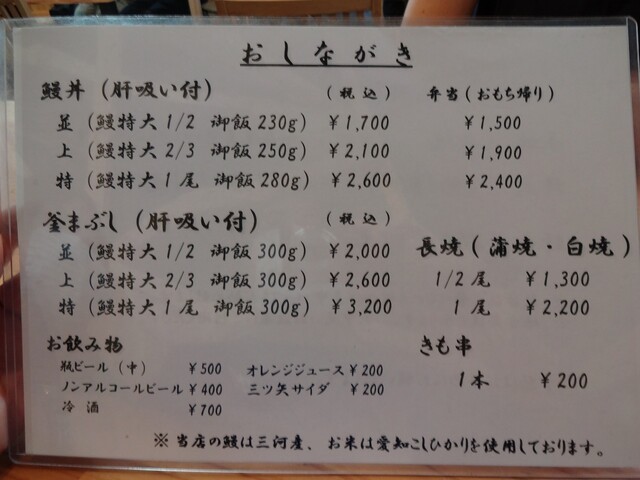 おしながき
鰻丼（肝吸い付）　（税込）　弁当（おもち帰り）
並（鰻特大1/2　御飯230g）　¥1,700　¥1,500
上（鰻特大2/3　御飯250g）　¥2,100　¥1,900
特（鰻特大1尾　御飯280g）　¥2,600　¥2,400
釜まぶし（肝吸い付）　（税込）
並（鰻特大1/2　御飯300g）　¥2,000
上（鰻特大2/3　御飯300g）　¥2,600
特（鰻特大1尾　御飯300g）　¥3,200
長焼（蒲焼・白焼）
1/2尾　¥1,300
1尾　¥2,200
お飲み物
瓶ビール（中）　¥500　オレンジジュース　¥200
ノンアルコールビール　¥400　三ツ矢サイダ　¥200
冷酒　¥700
きも串
1本　¥200
※当店の鰻は三河産、お米は愛知こしひかりを使用しております。